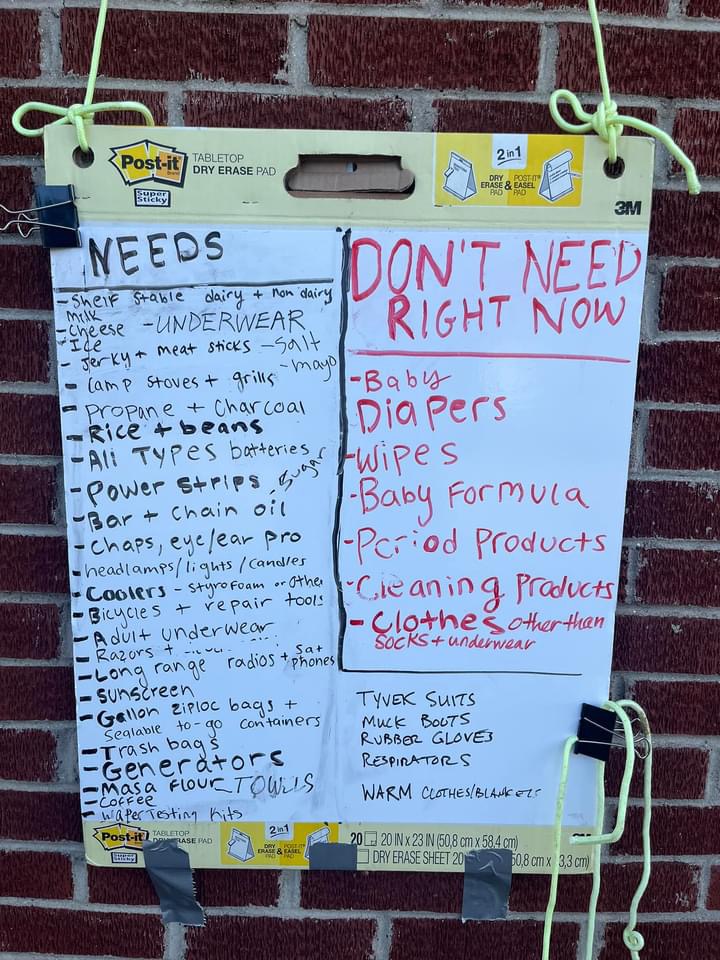 Post-it
Brand
Super
Sticky
TABLETOP
DRY ERASE PAD
2 in 1
DRY
ERASE
PAD
&
POST-IT®
EASEL
PAD
3M
NEEDS
- Shelf stable dairy + non dairy
milk
- Cheese - UNDERWEAR
- Ice
- Jerky + meat sticks - salt
- mayo
- Camp stoves + grills
- Propane + Charcoal
- Rice + beans
- All TYPES batteries
- Power strips, sugar
- Bar + Chain oil
- Chaps, eye/ear pro
- headlamps/lights/candles
- Coolers - styrofoam or other
- Bicycles + repair tools
- Adult underwear
- Razors +
- Long range radios + sat
phones
- Sunscreen
- Gallon ziploc bags +
Sealable to-go containers
- Trash bags
- Generators
- Masa flour TOWELS
- Coffee
- Water Testing Kits
DON'T NEED
RIGHT NOW
- Baby
Diapers
- Wipes
- Baby Formula
- Period Products
- Cleaning Products
- Clothes other than
socks + underwear
TYVEK SUITS
MUCK BOOTS
RUBBER GLOVES
RESPIRATORS
WARM CLOTHES/BLANKETS
Post-it
Super
Sticky
TABLETOP
DRY ERASE PAD
2 in 1
DRY
ERASE
PAD
&
POST-IT®
EASEL
PAD
20 20 IN x 23 IN (50,8 cm x 58,4 cm)
DRY ERASE SHEET 20 50,8 cm x 3,3 cm)